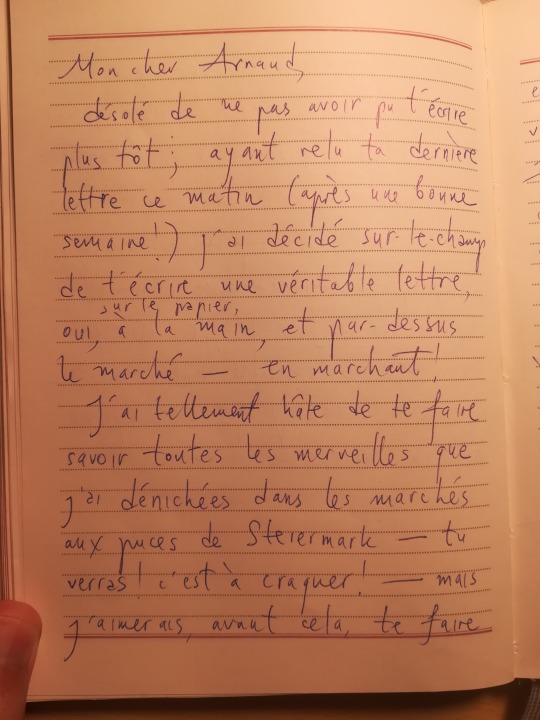 Mon cher Arnaud,
désolé de ne pas avoir pu t'écrire
plus tôt; ayant relu ta dernière
lettre ce matin (après une bonne
semaine!) j'ai décidé sur-le-champ
de t'écrire une véritable lettre,
sur le papier,
oui, à la main, et par-dessus
le marché — en marchant!
J'ai tellement hâte de te faire
savoir toutes les merveilles que
j'ai dénichées dans les marchés
aux puces de Steiermark — tu
verras! c'est à craquer! — mais
j'aimerais, avant cela, te faire